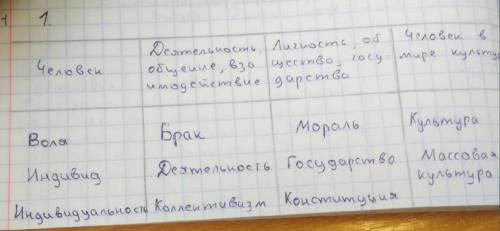 1.
Человек
Деятельность, общение, взаимодействие
Личность, общество, государство
Человек в мире культуры
Воля
Брак
Мораль
Культура
Индивид
Деятельность
Государство
Массовая культура
Индивидуальность
Коллективизм
Конституция